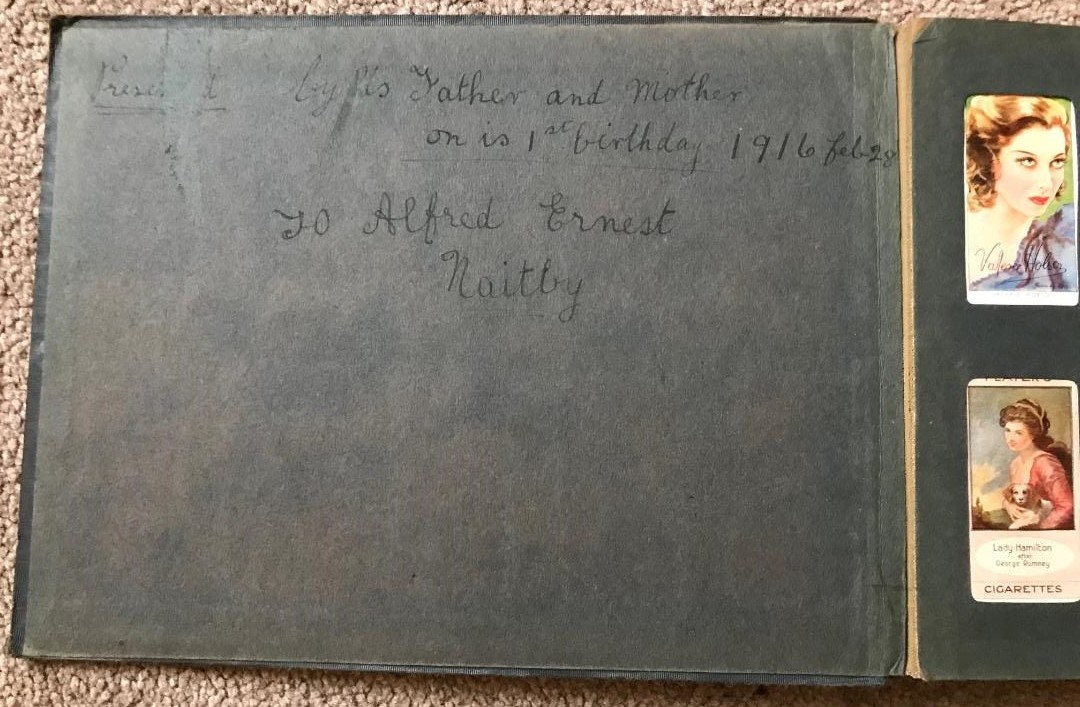 Presented by his Father and Mother
on is 1st birthday 1916 feb 28
To Alfred Ernest
Naitby
Valerie Hobson
PLAYER'S
Lady Hamilton
after
George Romney
CIGARETTES